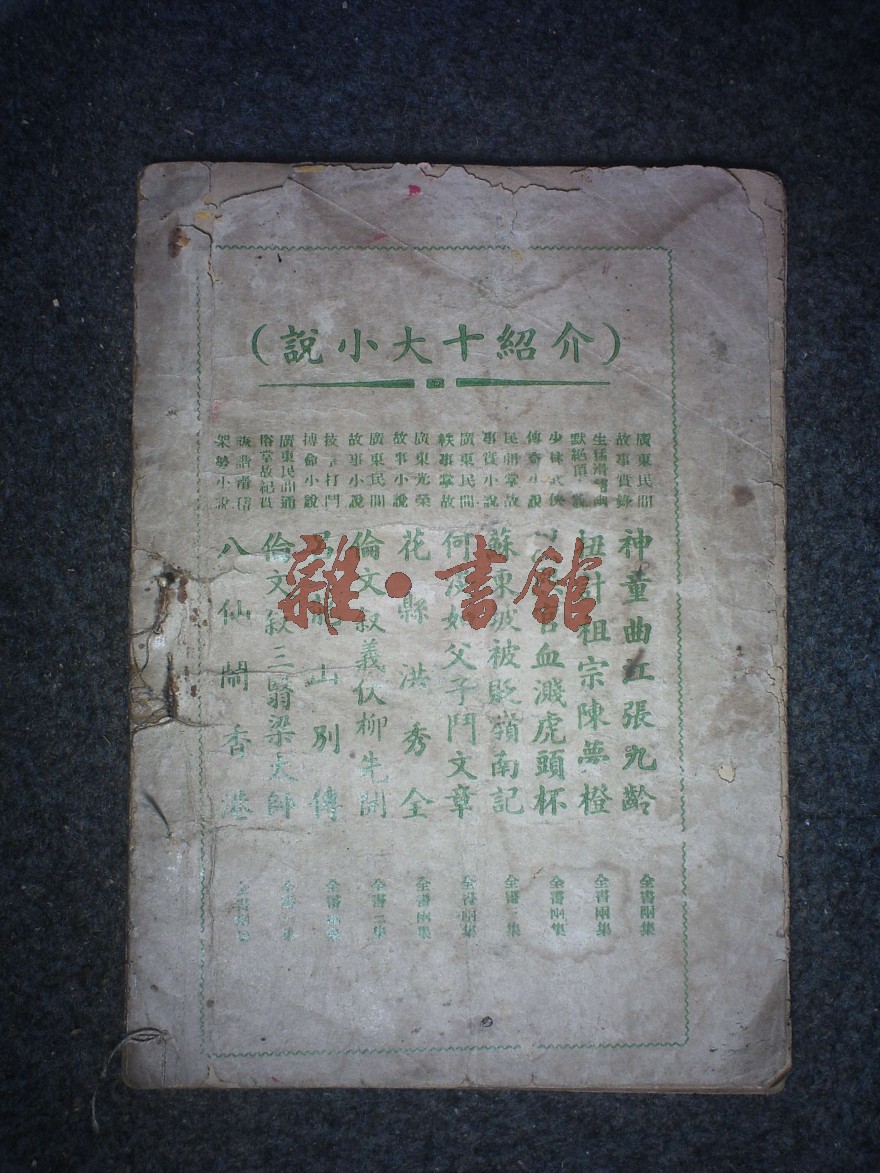 （介紹十大小說）
廣東民間
故事實錄
神童曲江張九齡
全書兩集
生猛滑稽幽
默絕頂小說
扭計祖宗陳夢橙
全書兩集
少林武俠
傳奇小說
血濺虎頭杯
全書兩集
民間掌故
事實小說
蘇東坡被貶嶺南記
全書 集
廣東民間
軼事掌故
何淡如父子鬥文章
全書兩集
廣東光榮
故事小說
花縣洪秀全
全書兩集
廣東民間
故事小說
倫文敘義伙柳先開
全書 集
技擊打鬥
搏命小說
山別傳
全書 集
廣東民間通
俗掌故紀實
倫文敘三戲梁太師
全書 集
詼諧
架勢小說
八仙鬧香港
全書
雜·書館